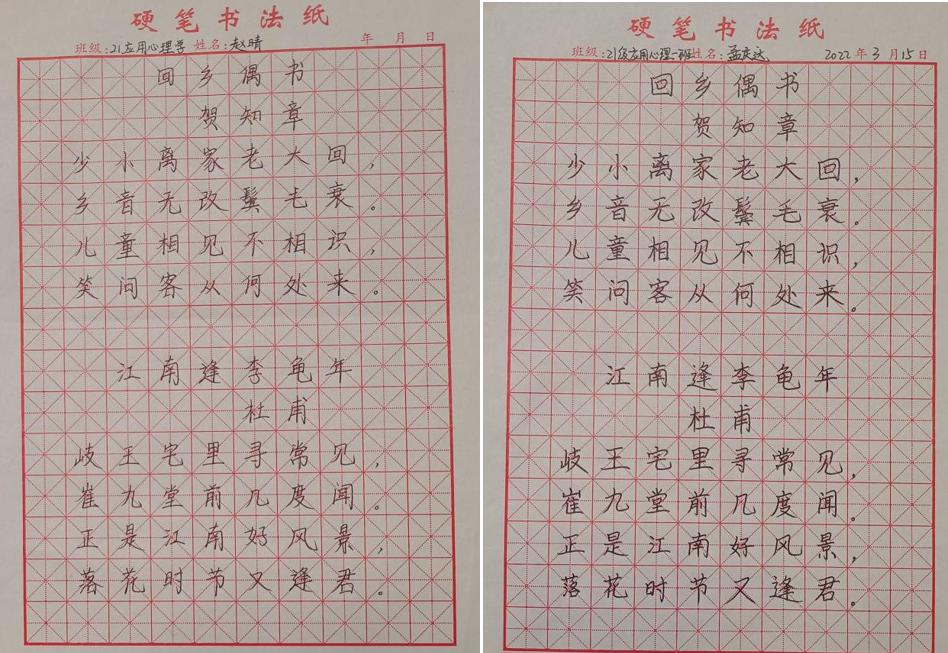 硬笔书法纸
班级:21应用心理学 姓名:赵晴 年 月 日
回乡偶书
贺知章
少小离家老大回,
乡音无改鬓毛衰。
儿童相见不相识,
笑问客从何处来。
江南逢李龟年
杜甫
岐王宅里寻常见,
崔九堂前几度闻。
正是江南好风景,
落花时节又逢君。
硬笔书法纸
班级:21级应用心理一班 姓名: 2022年3月15日
回乡偶书
贺知章
少小离家老大回,
乡音无改鬓毛衰。
儿童相见不相识,
笑问客从何处来。
江南逢李龟年
杜甫
岐王宅里寻常见,
崔九堂前几度闻。
正是江南好风景,
落花时节又逢君。